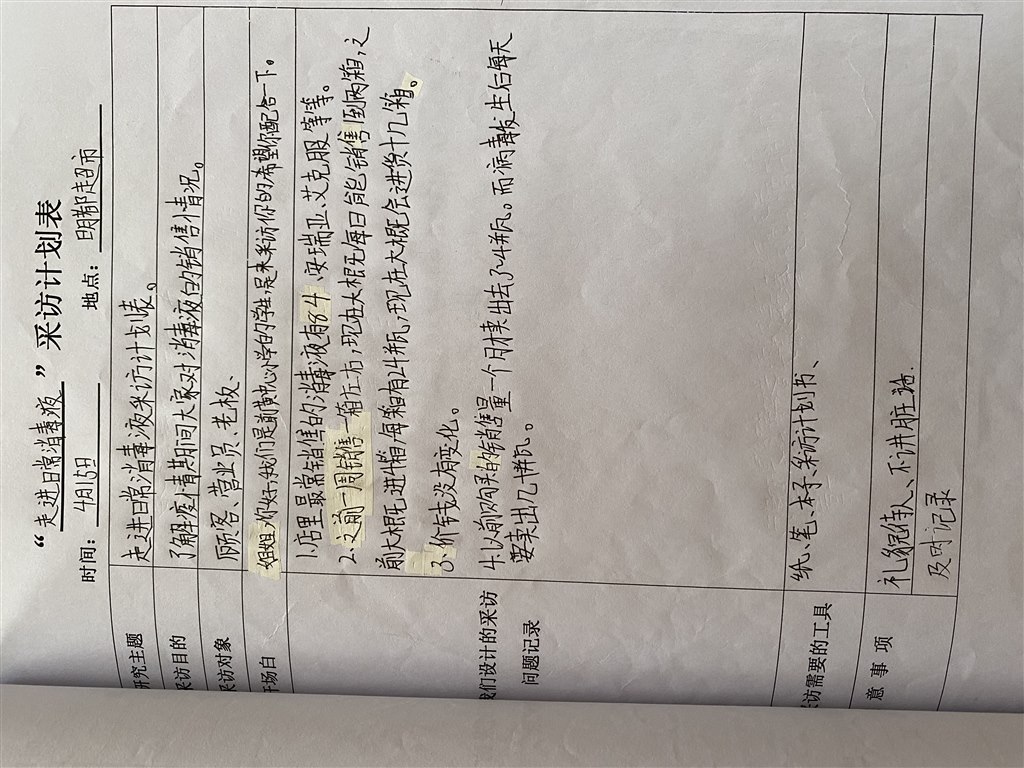 “走进日常消毒液”采访计划表
时间：4月15日 地点：明都超市
研究主题 走进日常消毒液采访计划表。
采访目的 了解疫情其间大家对消毒液的销售情况。
采访对象 顾客、营业员、老板、
开场白 姐姐,你好,我们是前黄中心小学的学生,是来采访你的希望你配合一下。
1.店里最常销售的消毒液有84、安瑞亚、艾克服等等。
2.之前一周销售一箱左右,现在大概每日能销售到两箱,之
前大概进4箱,每箱有24瓶,现在大概会进货十几箱。
3.价钱没有变化。
我们设计的采访
问题记录
4.以前购买的销售量一个月卖出去3~4瓶。而病毒发生后每天
要卖出几十瓶。
采访需要的工具 纸、笔、本子、采访计划书、
意事项 礼貌待人、不讲脏话.
及时记录